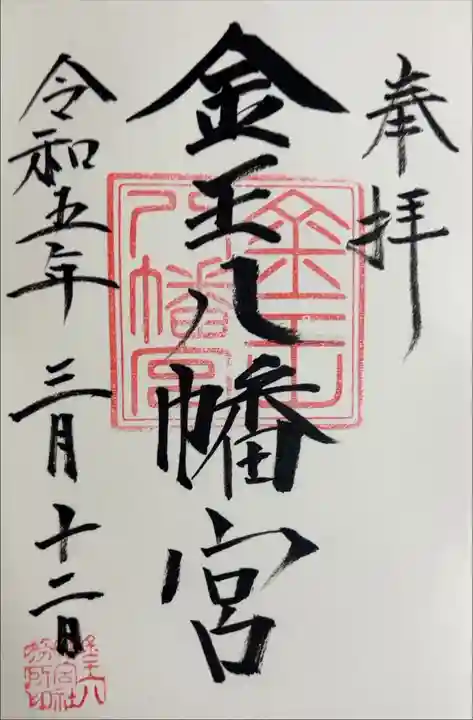 奉拝
金王八幡宮
令和五年 三月 十二日
金王八幡宮
金王八幡宮社務所印